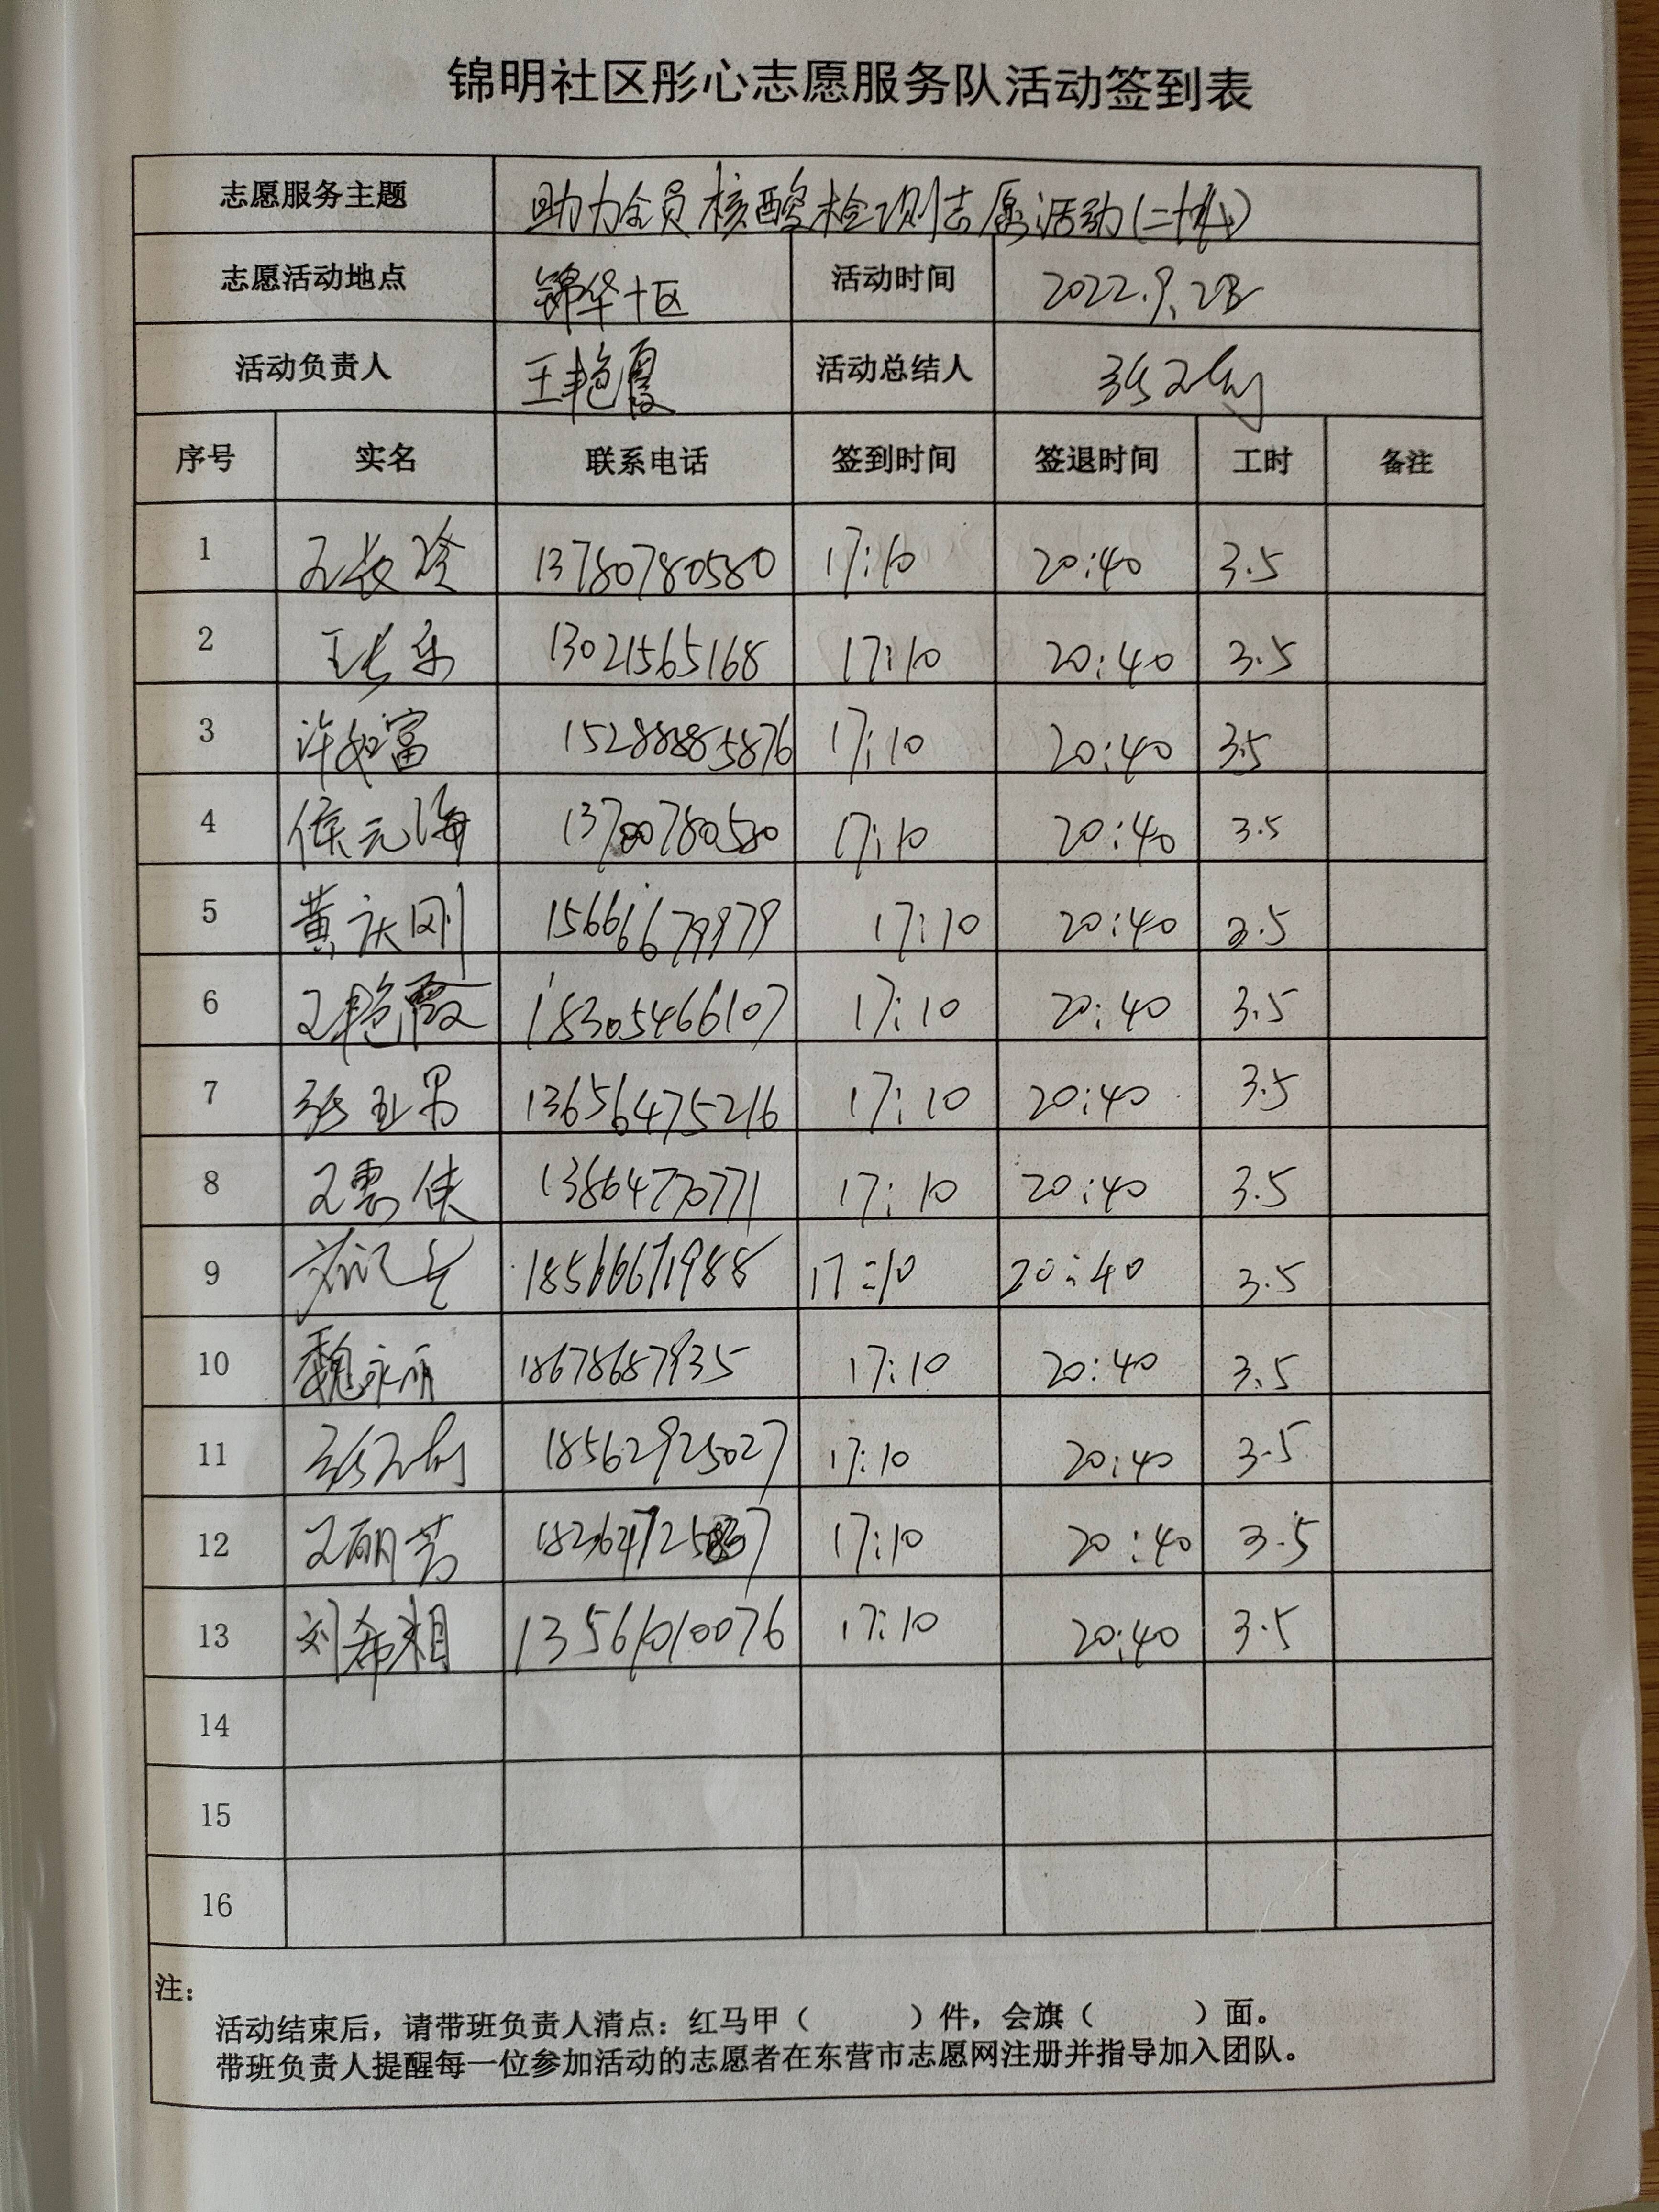 锦明社区彤心志愿服务队活动签到表
志愿服务主题 助力全员核酸检测志愿活动(二十
志愿活动地点 锦华十区 活动时间 2022.9.
活动负责人 王艳霞 活动总结人 张
序号 实名 联系电话 签到时间 签退时间 工时 备注
1 王 13780780580 17:10 20:40 3.5
2 王长乐 13021565168 17:10 20:40 3.5
3 许如富 15288885876 17:10 20:40 3.5
4 侯元海 17:10 20:40 3.5
5 黄庆刚 15666679979 17:10 20:40 3.5
6 王艳霞 18305466107 17:10 20:40 3.5
7 张亚男 13656475216 17:10 20:40 3.5
8 王云侠 13864770771 17:10 20:40 3.5
9 18566671988 17:10 20:40 3.5
10 魏永丽 18678687935 17:10 20:40 3.5
11 张 18562925027 17:10 20:40 3.5
12 王丽芳 17:10 20:40 3.5
13 刘希相 13561010076 17:10 20:40 3.5
14
15
16
注：
活动结束后，请带班负责人清点：红马甲（ ）件，会旗（ ）面。
带班负责人提醒每一位参加活动的志愿者在东营市志愿网注册并指导加入团队。